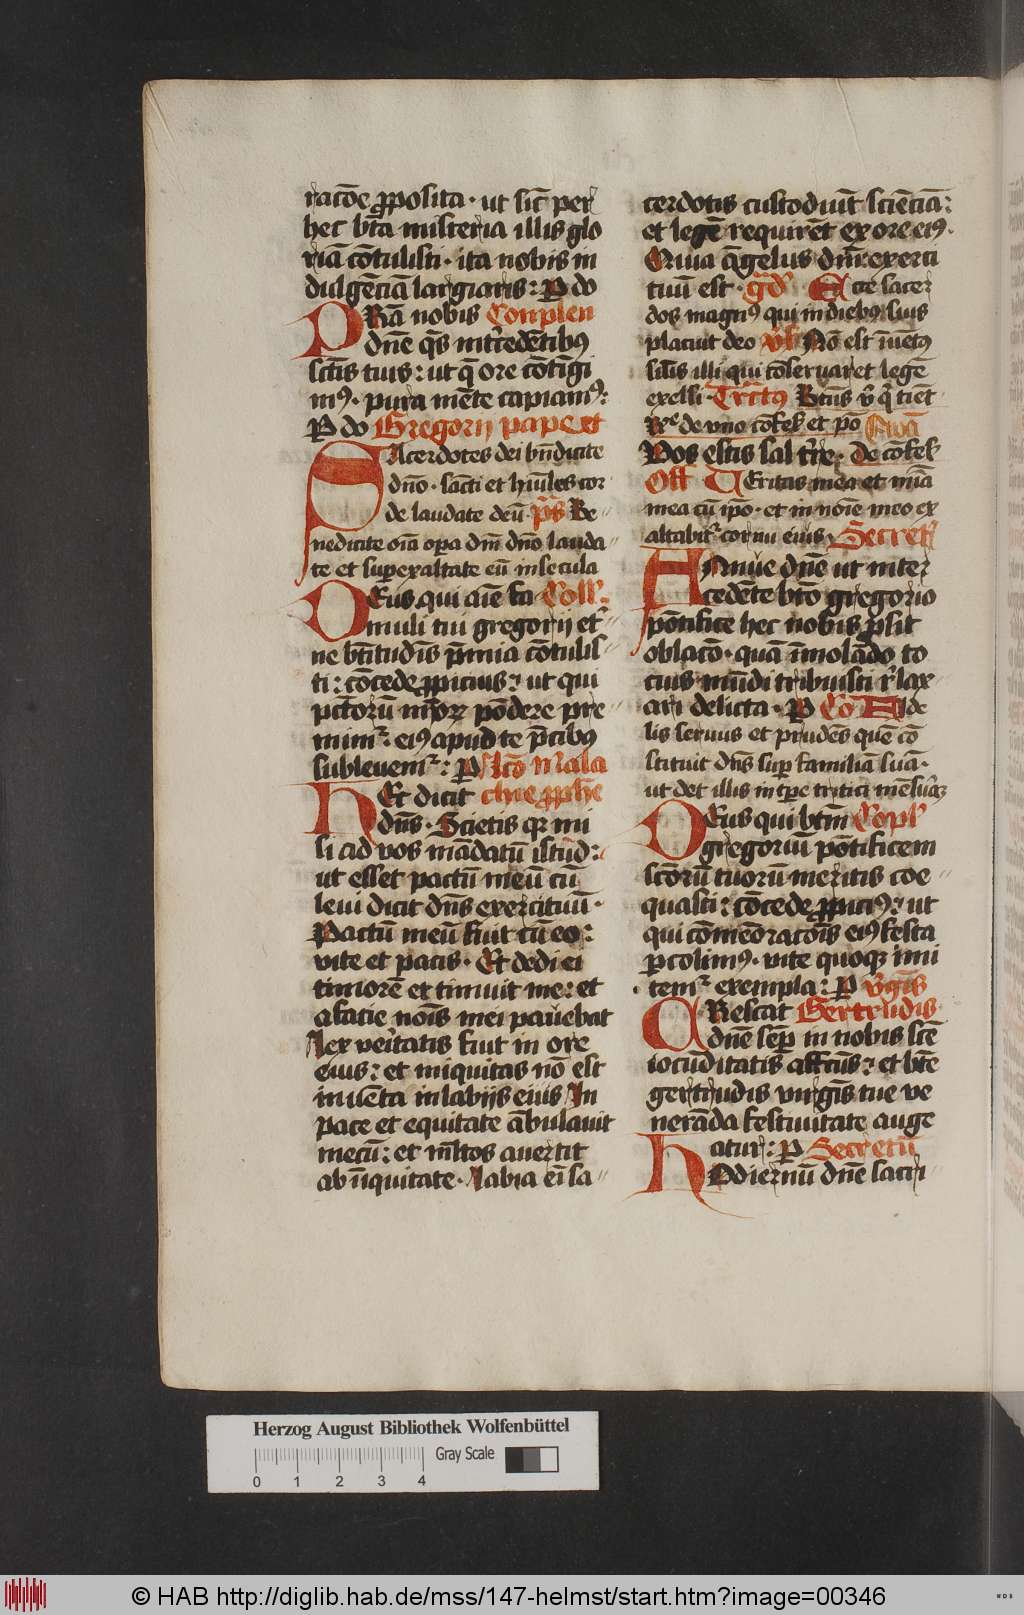 racōe ꝓposita · ut sic̄ per
hec bt̄a misteria illis glo
riā cōtulisti · ita nobis in
dulgēciā largiaris : P do
PRā nobis Conplen
dn̄e q̄s int̓cedētibus
sctīs tuis : ut q̄ ore cōtīgi
mꝰ · pura mēte capiamꝰ :
P do Gregorii pape et
SAcerdotes dei bn̄dicite
dn̄o · sācti et hūiles cor
de laudate deū · p̄s Be
nedicite oīa oꝑa dn̄i dn̄o lauda
te et suꝑexaltate eū in secula
DEus qui aīe fa Coll̄
muli tui gregorij et̓
ne bt̄itudīs p̄mia cōtulis
ti : cōcede ꝓpicius : ut qui
pctōrū nr̄oꝝ pōdere pre
mimꝰ · eiꝰ apud te p̄cibus
subleuemꝰ : P Lcō Mala
HEc dicit chie ꝓphē
dn̄s · Scietis qꝛ mi
si ad vos mādatū istud :
ut esset pactū meū cū
leui dicit dn̄s exercituū ·
Pactū meū fuit cū eo :
vite et pacis · Et dedi ei
timorē et timuit me : et
a facie nōis mei pauebat
Lex veritatis fuit in ore
eius : et iniquitas nō est
inuēta in labijs eius In
pace et equitate ābulauit
mecū : et ml̄tos auertit
ab īiquitate · Labia ei sa
cerdotis custodiūt sciēciā :
et legē requirēt ex ore eiꝰ ·
Quia āgelus dn̄i exerci
tuū est · gd̄ Ecce sacer
dos magnꝰ qui in diebꝰ suis
placuit deo v̄s Nō est īuētꝰ
sil̄is illi qui cōseruaret legē
excelsi · Trctꝰ Btūs v̄ q̄ tiet
Re de vno cōfess et pō Ewā
Vos estis sal tr̄e · de cōfess
Off VEritas mea et mīa
mea cū ip̄o · et in noīe meo ex
altabit̓ cornu eius · Secret
ANnue dn̄e ut inter
cedēte bt̄o gregorio
pōtifice hec nobis ꝓsit
oblacō · quā īmolādo to
cius mūdi tribuisti r̓lax
ari delicta · P Co Fide
lis seruus et prudēs quē cō
stituit dn̄s suꝑ familiā suā ·
ut det illis in tꝑe tritici mēsurā
DEus qui bt̄m Copl
gregoriū pōtificem
scōrū tuorū meritis coe
quasti : cōcede ꝓpiciꝰ : ut
qui cōmeōracōis eiꝰ festa
ꝑcolimꝰ · vite quoqꝫ imi
temꝰ exempla : P v̓gīs
CRescat Gertrudis
dn̄e semꝑ in nobis scē
iocūditatis affcūs : et bt̄e
gertrudis virgīs tue ve
nerāda festiuitate auge
atur : P Secretū
HOdiernū dn̄e sacri
Herzog August Bibliothek Wolfenbüttel
0 1 2 3 4
Gray Scale
© HAB http://diglib.hab.de/mss/147-helmst/start.htm?image=00346